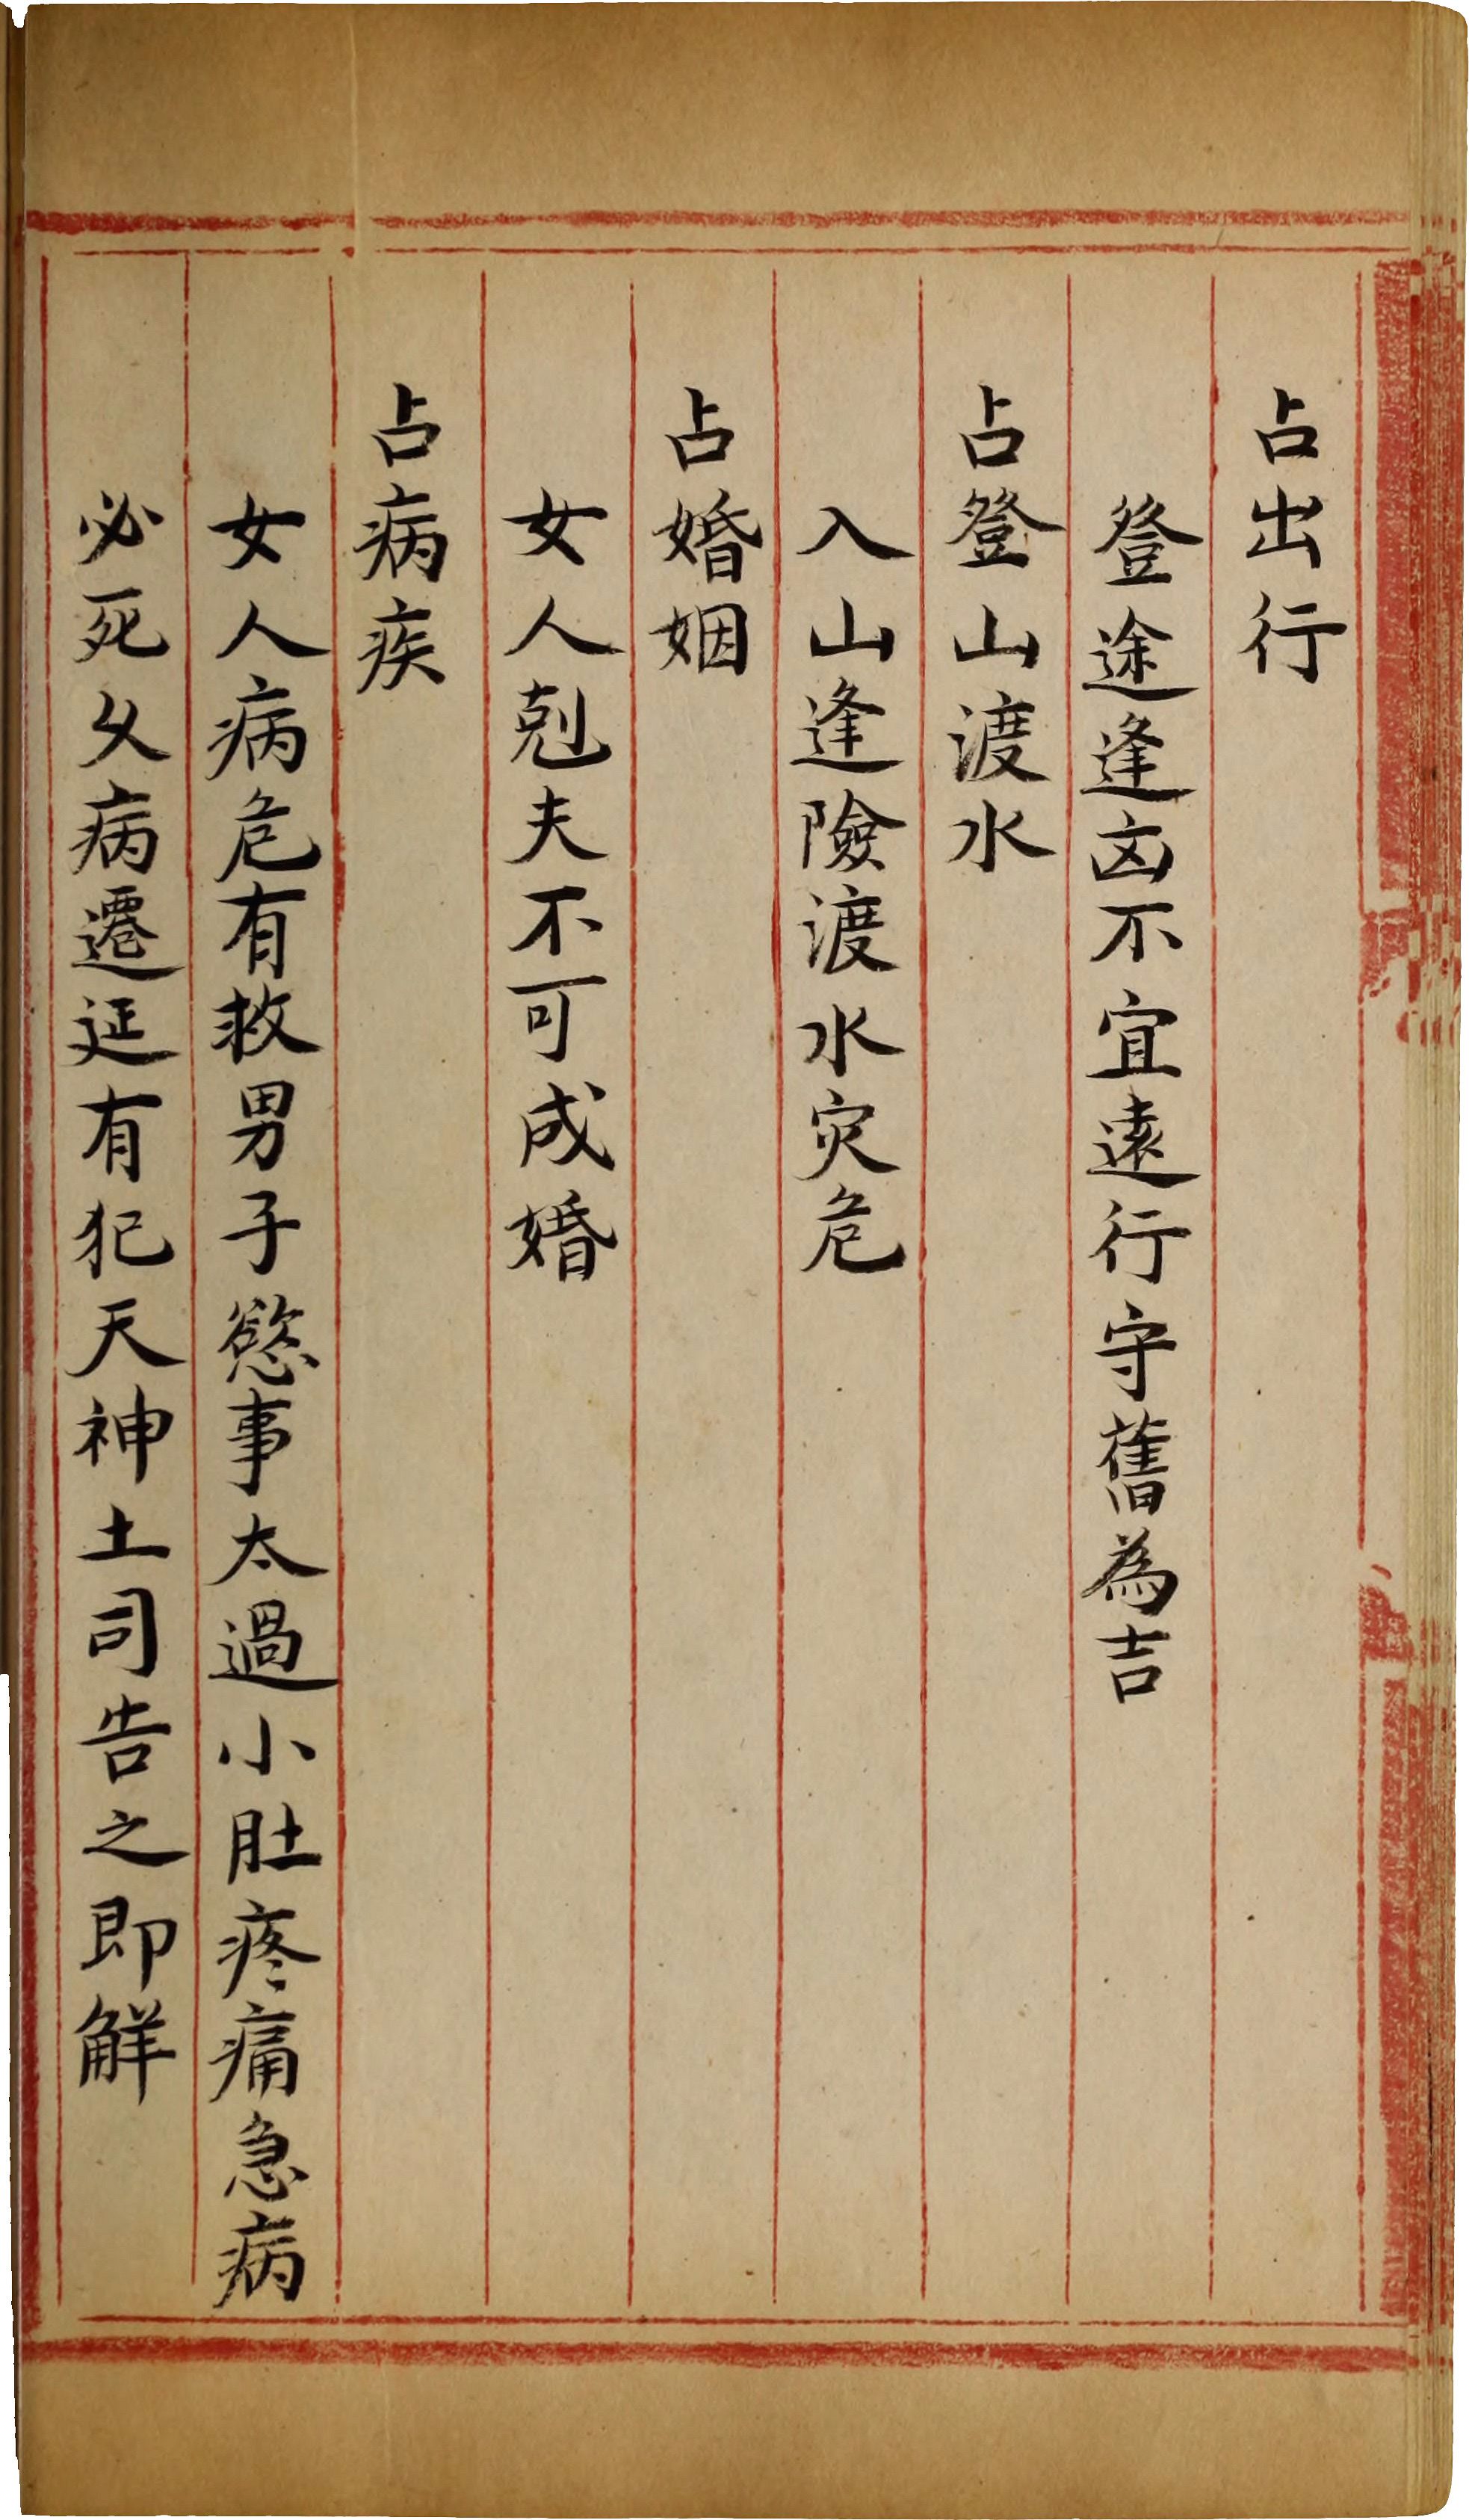 占出行
登途逢凶不宜遠行守舊為吉
占登山渡水
入山逢險渡水灾危
占婚姻
女人剋夫不可成婚
占病疾
女人病危有救男子慾事太過小肚疼痛急病
必死久病遷延有犯天神土司告之即觧